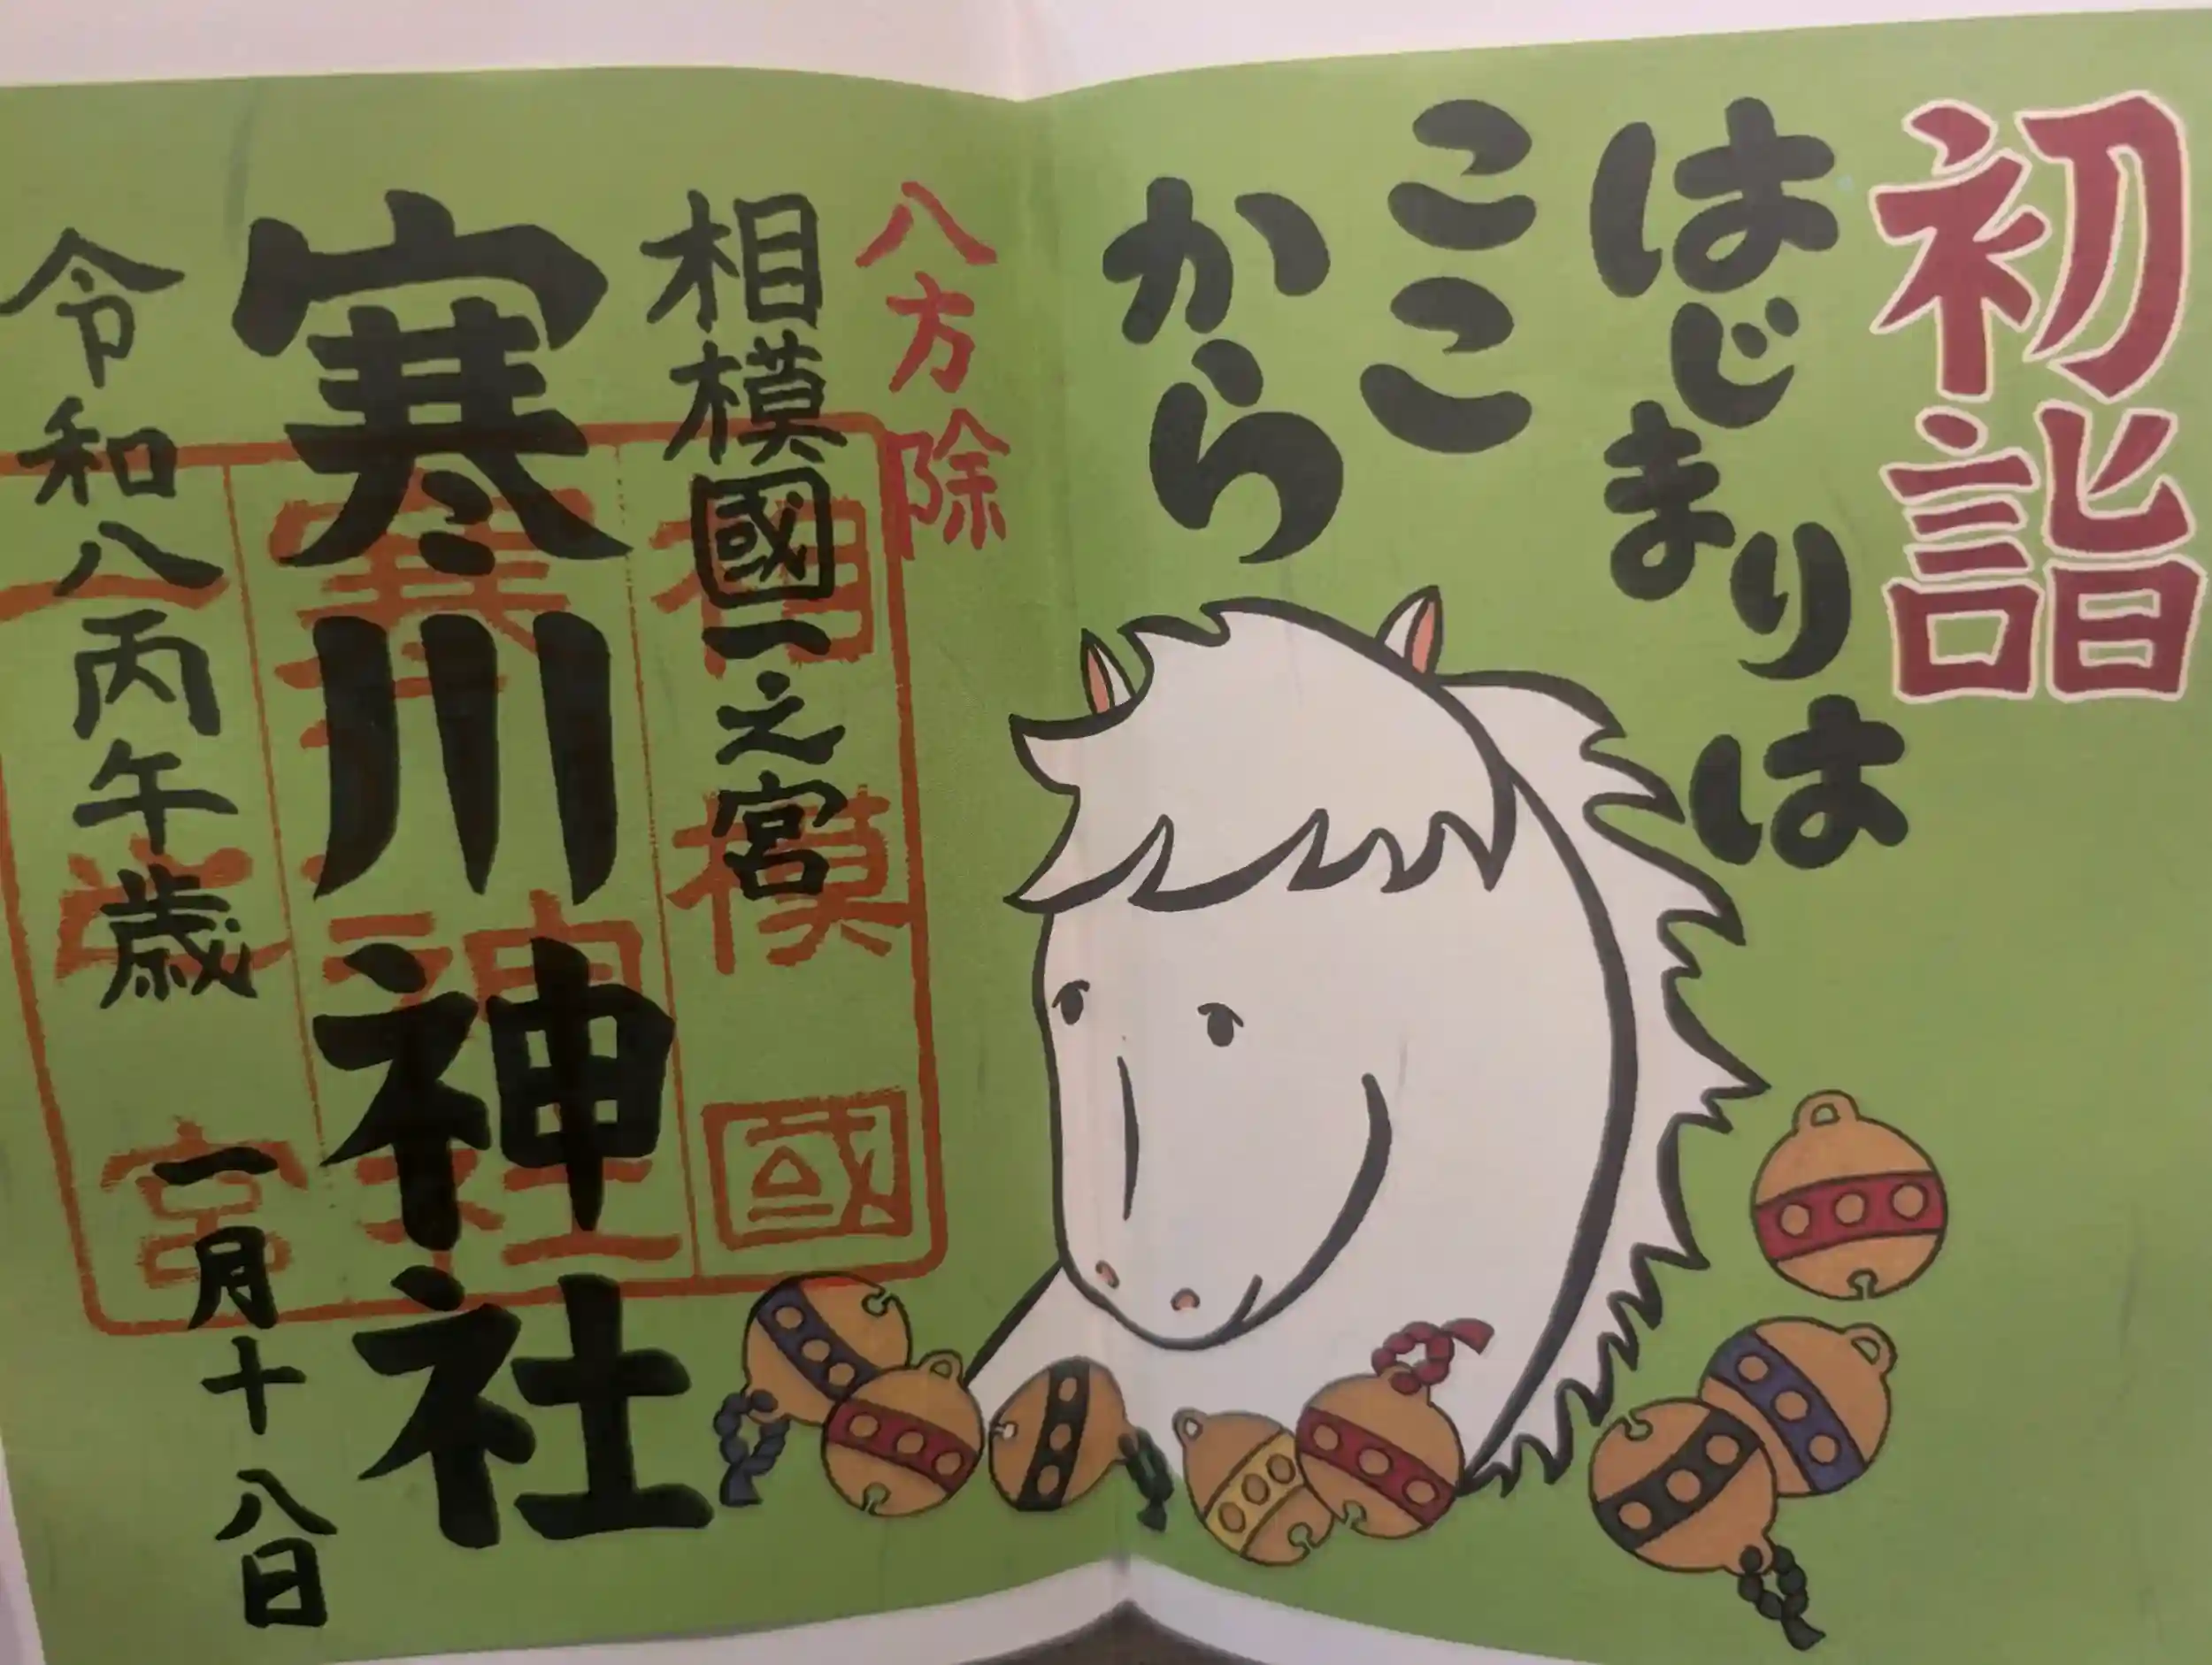 初詣
はじまりは
ここ
から
八方除
相模國一之宮
寒川神社
令和八丙午歳
一月十八日
相模國
寒川神社
一之宮